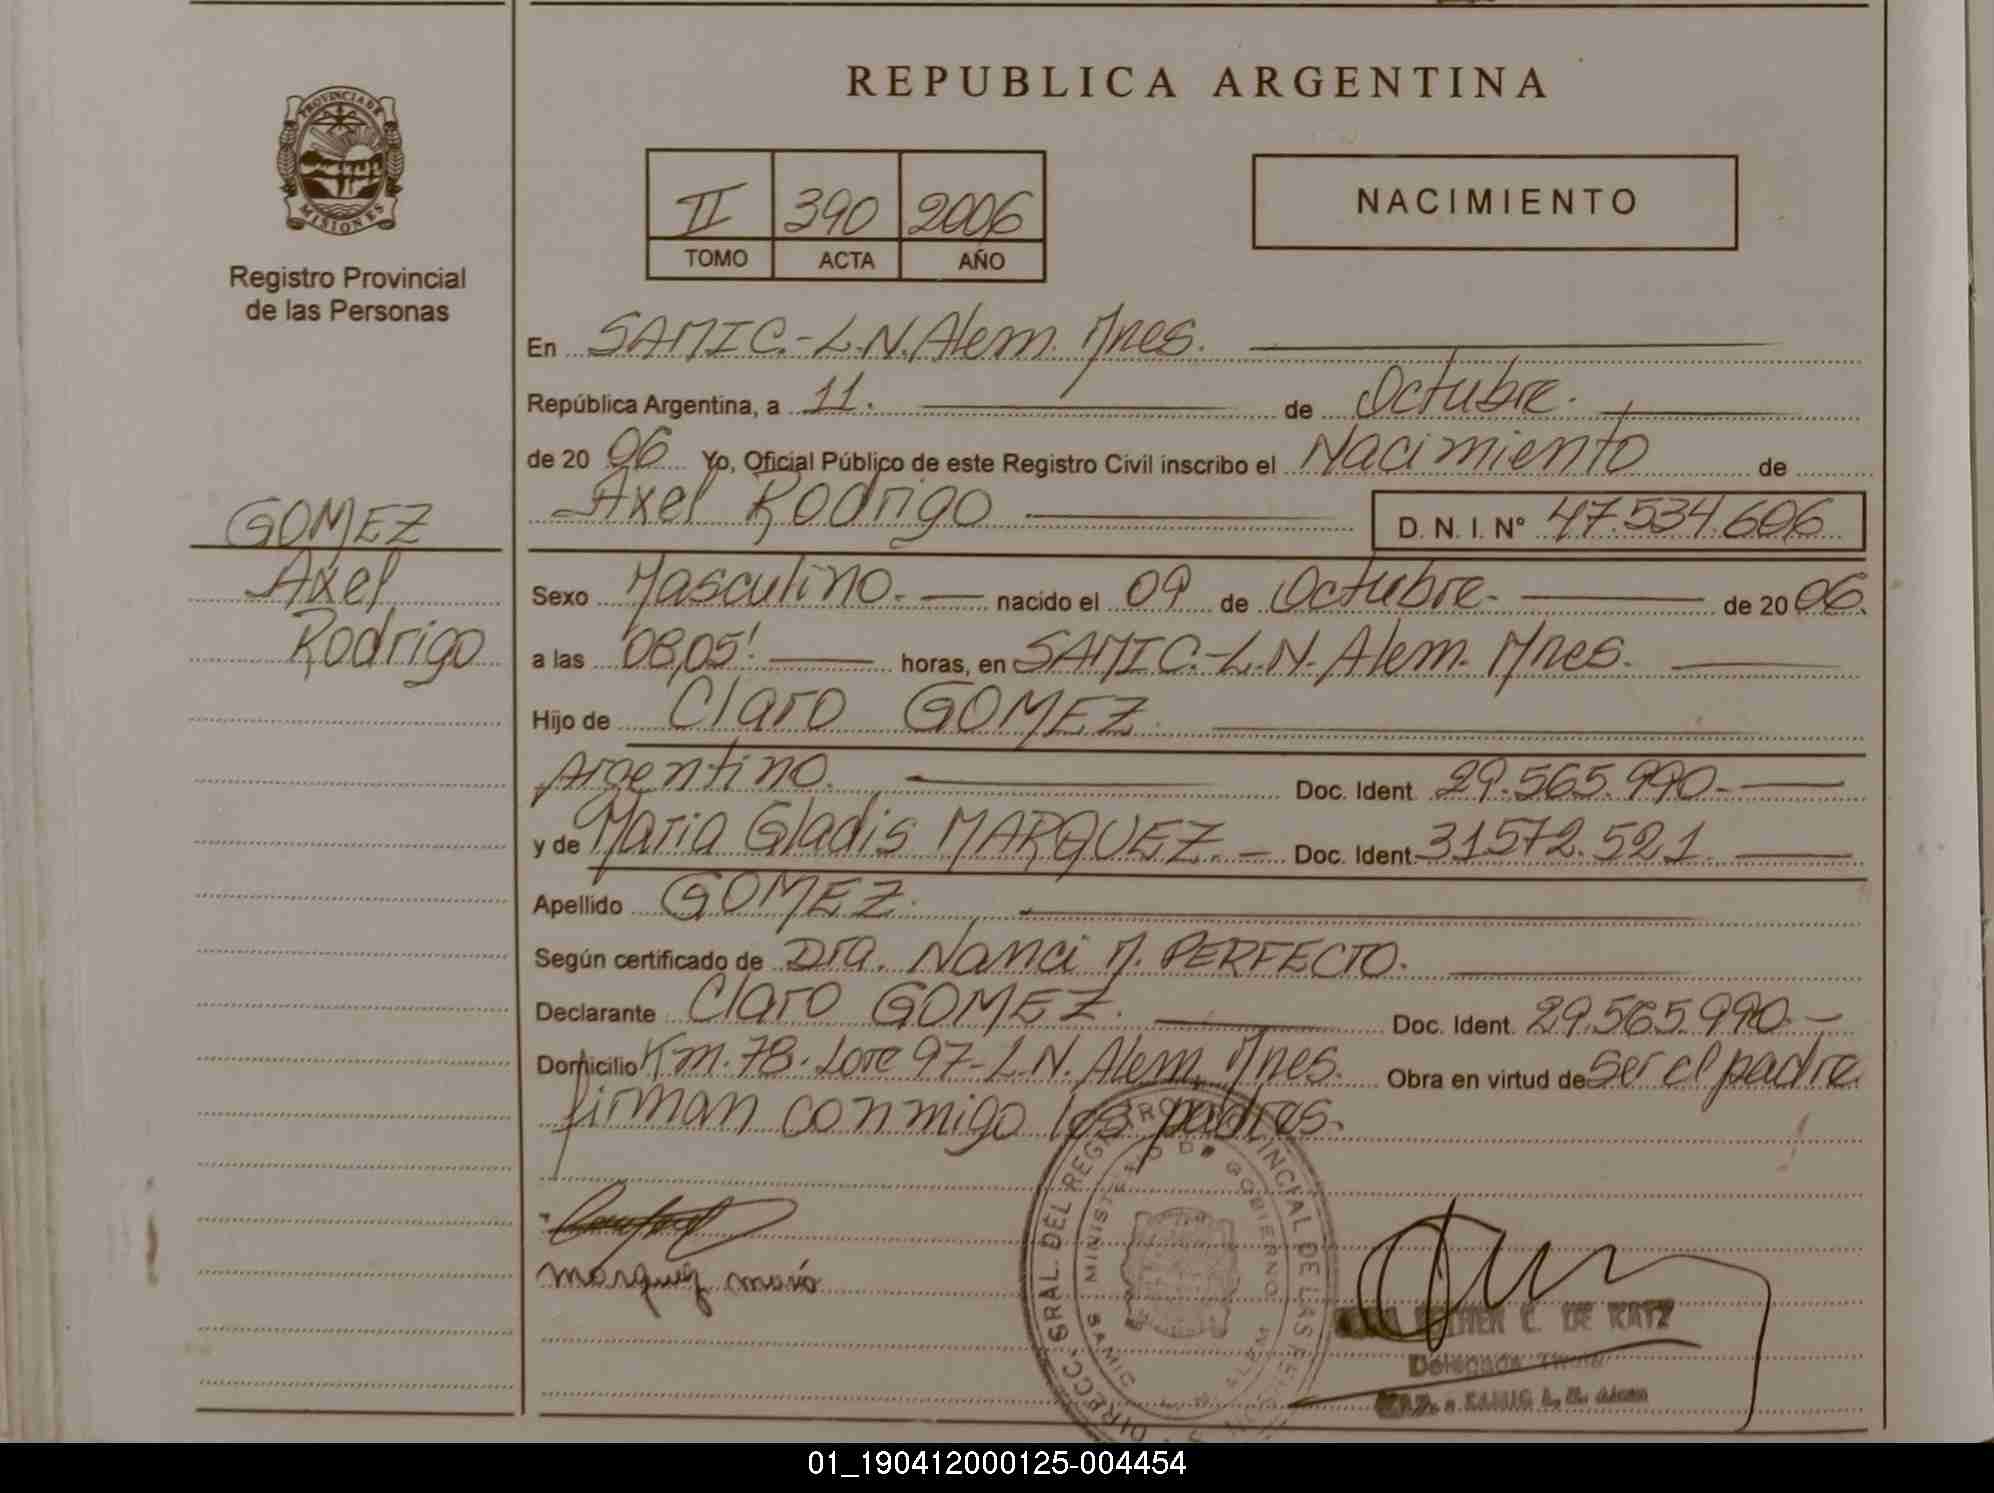 REPUBLICA ARGENTINA
PROVINCIA DE
MISIONES
Registro Provincial
de las Personas
II 390 2006
TOMO ACTA AÑO
NACIMIENTO
En SAMIC.-L.N.Alem. Mnes.
República Argentina, a 11. de Octubre.
de 20 06 Yo, Oficial Público de este Registro Civil inscribo el Nacimiento de
Axel Rodrigo D. N. I. Nº 47.534.606
GOMEZ
Axel
Rodrigo
Sexo Masculino. nacido el 09 de Octubre. de 20 06.
a las 08,05'. horas, en SAMIC.-L.N. Alem. Mnes.
Hijo de Claro GOMEZ.
Argentino. Doc. Ident 29.565.990.
y de Maria Gladis MARQUEZ. Doc. Ident. 31572.521.
Apellido GOMEZ.
Según certificado de Dra. Nanci M. PERFECTO.
Declarante Claro GOMEZ. Doc. Ident. 29.565.990
Domicilio Km. 78. Lote 97-L.N. Alem. Mnes. Obra en virtud de ser el padre
firman conmigo los padres.
marquez maria
DIRECC. GRAL. DEL REGISTRO PROVINCIAL DE LAS PERSONAS
MINISTERIO DE GOBIERNO
SAMIC L. N. ALEM
C. DE KATZ
Delegada
SAMIC L. N. Alem
01_190412000125-004454